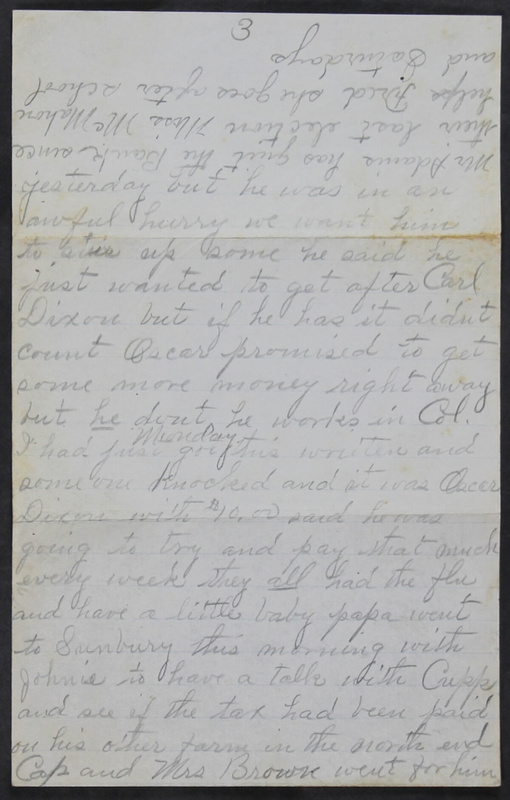 3
Mr Adams has quit the Bank since
their last election Miss McMahon
helps Fred she goes after school
and Saturdays
yesterday but he was in an
awful hurry we want him
to stir up some he said he
just wanted to get after Carl
Dixon but if he has it didnt
count Oscar promised to get
some more money right away
but he dont he works in Col.
I had just got this written and
Monday
some one knocked and it was Oscar
Dixon with $10.00 said he was
going to try and pay that much
every week they all had the flu
and have a little baby papa went
to Sunbury this morning with
Johnie to have a talk with Cupp
and see if the tax had been paid
on his other farm in the north end
Cap and Mrs Brown went for him